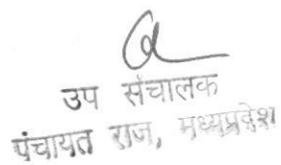 उप संचालक
पंचायत राज, मध्यप्रदेश